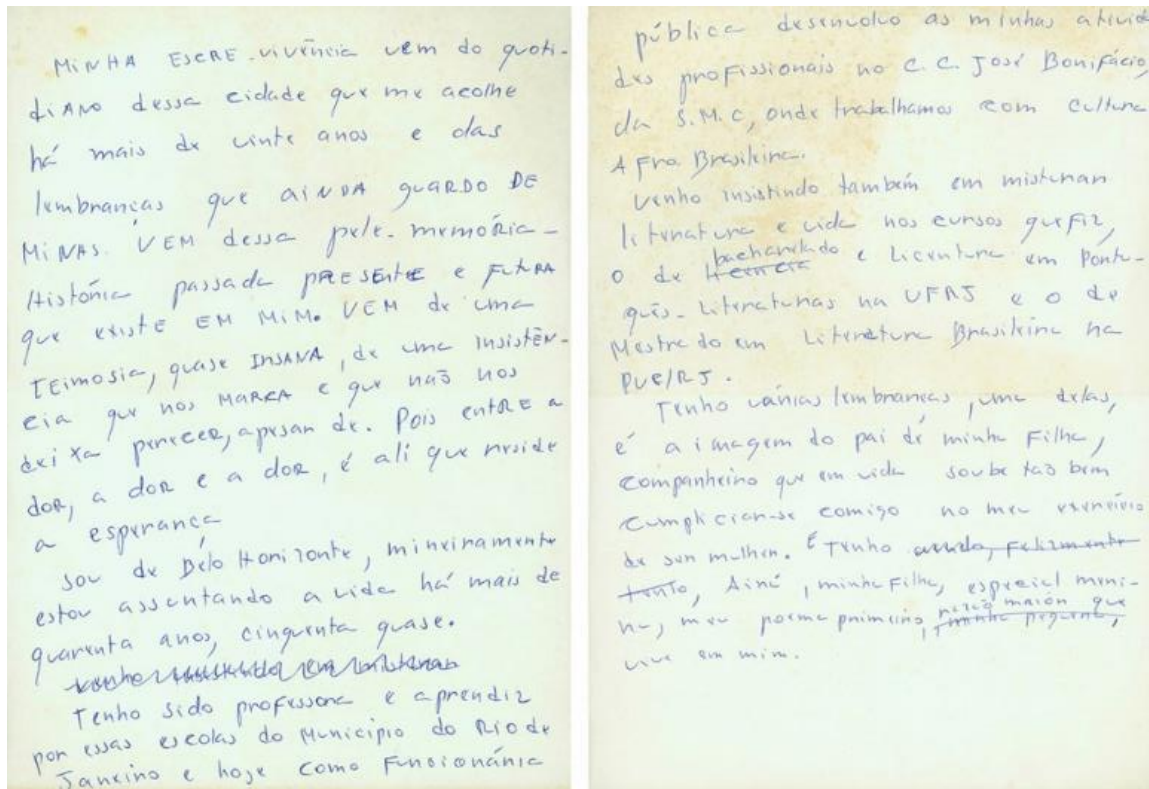 MINHA ESCRE-vivência vem do quoti-
diANO dessa cidade que me acolhe
há mais de vinte anos e das
lembranças que aiNDA guardo DE
MiNAS. VEM dessa pele-memória-
História passada PRESENTE e FUTURA
que existE EM MiM. VEM de uma
TEimosia, quase INSANA, de uma insistÊN-
cia que nos MARCA e que não nos
deixa perecer, apesar de. Pois entRE a
dor, a dor e a dor, é ali que reside
a esperança
Sou de Belo Horizonte, mineiramente
estou assentando a vida há mais de
quarenta anos, cinquenta quase.
venho insistindo em misturar
Tenho sido professora e aprendiz
por essas escolas do Município do Rio de
Janeiro e hoje como Funcionária
pública desenvolvo as minhas ativida
des profissionais no C.C. José Bonifácio,
da S.M.C, onde trabalhamos com cultura
AFro Brasileira.
Venho insistindo também em misturar
literatura e vida nos cursos que fiz,
bacharelado
o de e Licentura em Portu-
guês-Literaturas na UFRJ e o de
Mestrado em Literatura Brasileira na
PUC/RJ.
Tenho várias lembranças, uma delas,
é a imagem do pai de minha Filha,
companheiro que em vida soube tão bem
cumpliciar-se comigo no meu exercício
de ser mulher. E Tenho ainda, felizmente
tenho, Ainá, minha Filha, especial meni-
na, meu poema primeiro, maior que
minha pequena,
vive em mim.